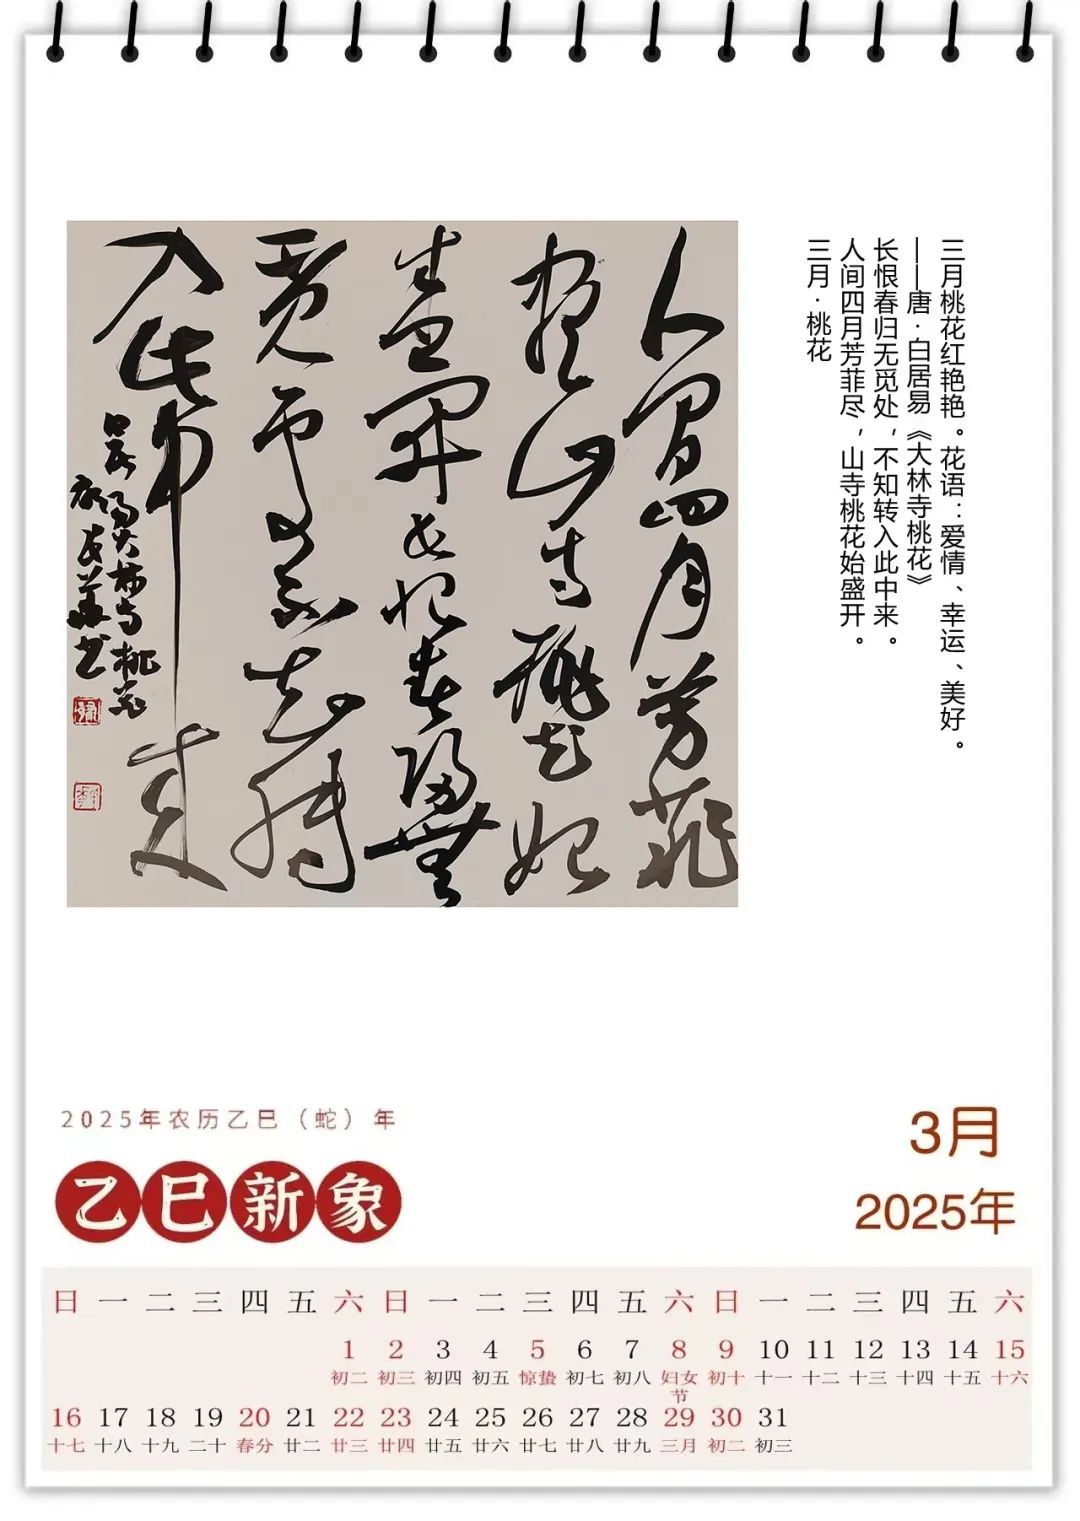 人間四月芳菲
盡山寺桃花始
盛開長恨春歸無
覓處不知轉
入此中來
居易大林寺桃花
三月·桃花
人间四月芳菲尽，山寺桃花始盛开。
长恨春归无觅处，不知转入此中来。
——唐·白居易《大林寺桃花》
三月桃花红艳艳。花语：爱情、幸运、美好。
2025年农历乙巳（蛇）年
乙巳新象
3月
2025年
日 一 二 三 四 五 六 日 一 二 三 四 五 六 日 一 二 三 四 五 六
1 2 3 4 5 6 7 8 9 10 11 12 13 14 15
初二 初三 初四 初五 惊蛰 初七 初八 妇女节 初十 十一 十二 十三 十四 十五 十六
16 17 18 19 20 21 22 23 24 25 26 27 28 29 30 31
十七 十八 十九 二十 春分 廿二 廿三 廿四 廿五 廿六 廿七 廿八 廿九 三月 初二 初三